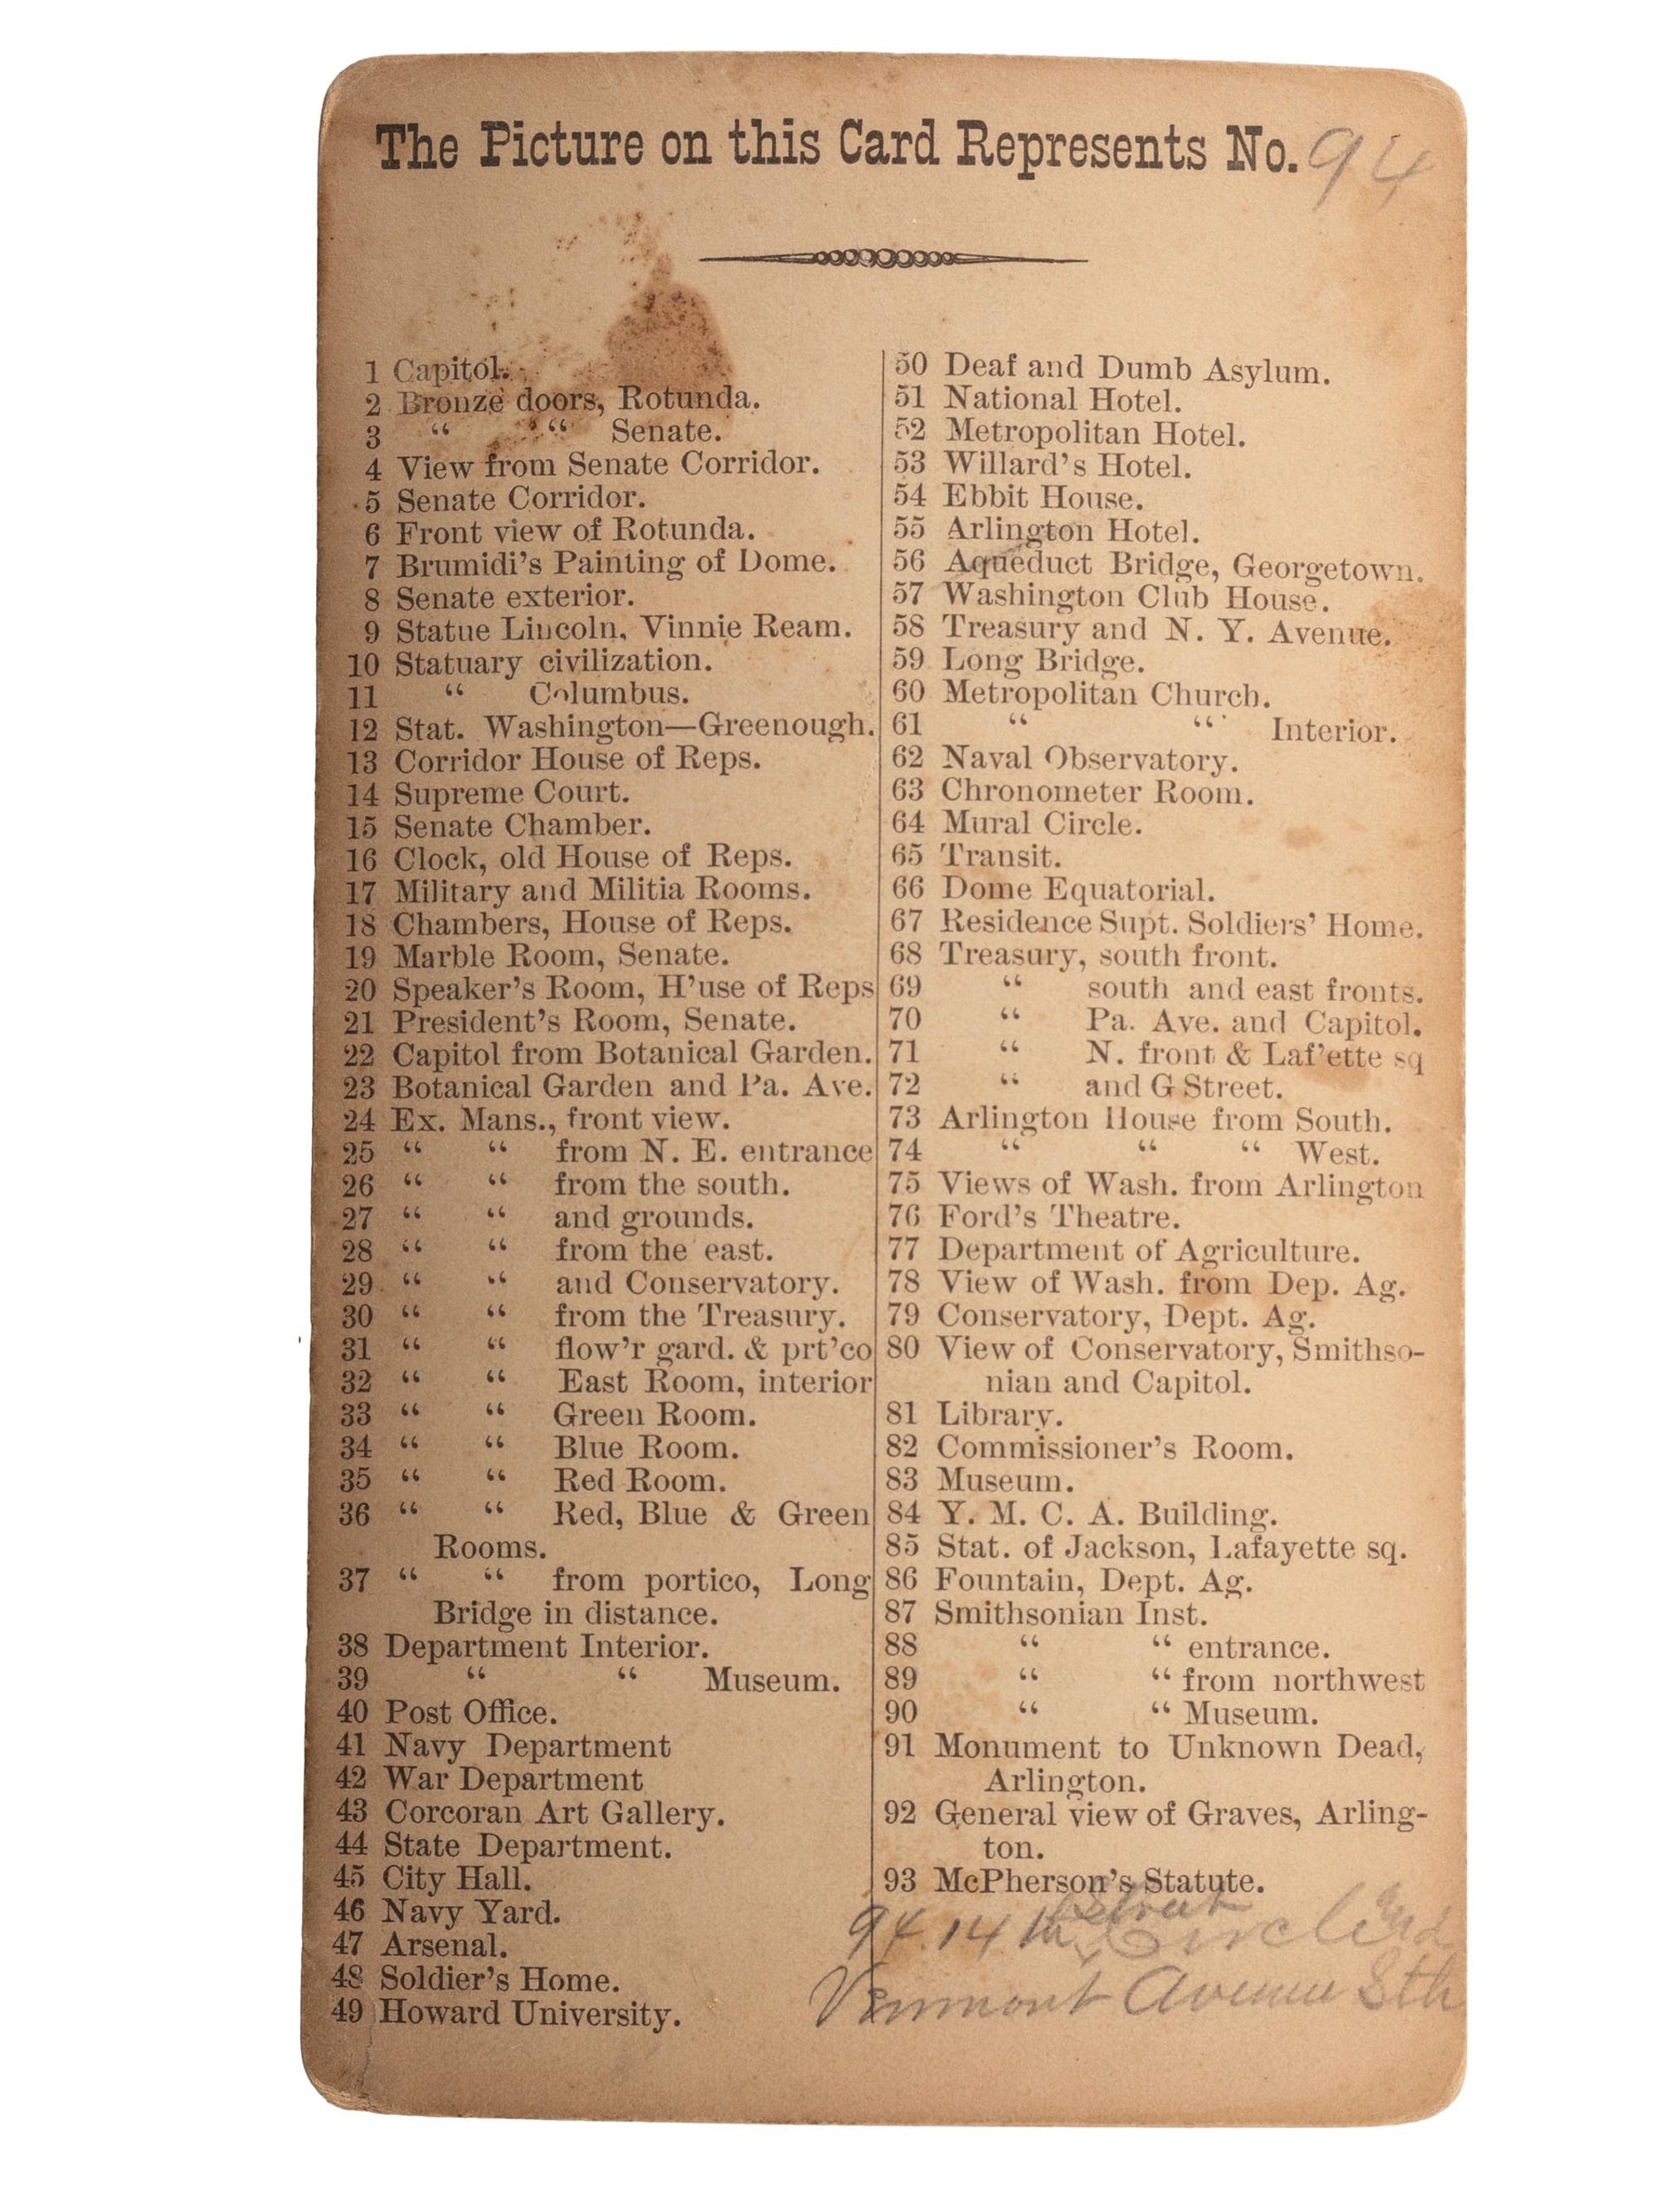 The Picture on this Card Represents No. 94
1 Capitol.
2 Bronze doors, Rotunda.
3 “ “ Senate.
4 View from Senate Corridor.
5 Senate Corridor.
6 Front view of Rotunda.
7 Brumidi’s Painting of Dome.
8 Senate exterior.
9 Statue Lincoln, Vinnie Ream.
10 Statuary civilization.
11 “ Columbus.
12 Stat. Washington—Greenough.
13 Corridor House of Reps.
14 Supreme Court.
15 Senate Chamber.
16 Clock, old House of Reps.
17 Military and Militia Rooms.
18 Chambers, House of Reps.
19 Marble Room, Senate.
20 Speaker’s Room, H’use of Reps
21 President’s Room, Senate.
22 Capitol from Botanical Garden.
23 Botanical Garden and Pa. Ave.
24 Ex. Mans., front view.
25 “ “ from N. E. entrance
26 “ “ from the south.
27 “ “ and grounds.
28 “ “ from the east.
29 “ “ and Conservatory.
30 “ “ from the Treasury.
31 “ “ flow’r gard. & prt’co
32 “ “ East Room, interior
33 “ “ Green Room.
34 “ “ Blue Room.
35 “ “ Red Room.
36 “ “ Red, Blue & Green
Rooms.
37 “ “ from portico, Long
Bridge in distance.
38 Department Interior.
39 “ “ Museum.
40 Post Office.
41 Navy Department
42 War Department
43 Corcoran Art Gallery.
44 State Department.
45 City Hall.
46 Navy Yard.
47 Arsenal.
48 Soldier’s Home.
49 Howard University.
50 Deaf and Dumb Asylum.
51 National Hotel.
52 Metropolitan Hotel.
53 Willard’s Hotel.
54 Ebbit House.
55 Arlington Hotel.
56 Aqueduct Bridge, Georgetown.
57 Washington Club House.
58 Treasury and N. Y. Avenue.
59 Long Bridge.
60 Metropolitan Church.
61 “ “ Interior.
62 Naval Observatory.
63 Chronometer Room.
64 Mural Circle.
65 Transit.
66 Dome Equatorial.
67 Residence Supt. Soldiers’ Home.
68 Treasury, south front.
69 “ south and east fronts.
70 “ Pa. Ave. and Capitol.
71 “ N. front & Laf’ette sq
72 “ and G Street.
73 Arlington House from South.
74 “ “ “ West.
75 Views of Wash. from Arlington
76 Ford’s Theatre.
77 Department of Agriculture.
78 View of Wash. from Dep. Ag.
79 Conservatory, Dept. Ag.
80 View of Conservatory, Smithso-
nian and Capitol.
81 Library.
82 Commissioner’s Room.
83 Museum.
84 Y. M. C. A. Building.
85 Stat. of Jackson, Lafayette sq.
86 Fountain, Dept. Ag.
87 Smithsonian Inst.
88 “ “ entrance.
89 “ “ from northwest
90 “ “ Museum.
91 Monument to Unknown Dead,
Arlington.
92 General view of Graves, Arling-
ton.
93 McPherson’s Statute.
Street
94. 14th Circle and
Vermont Avenue